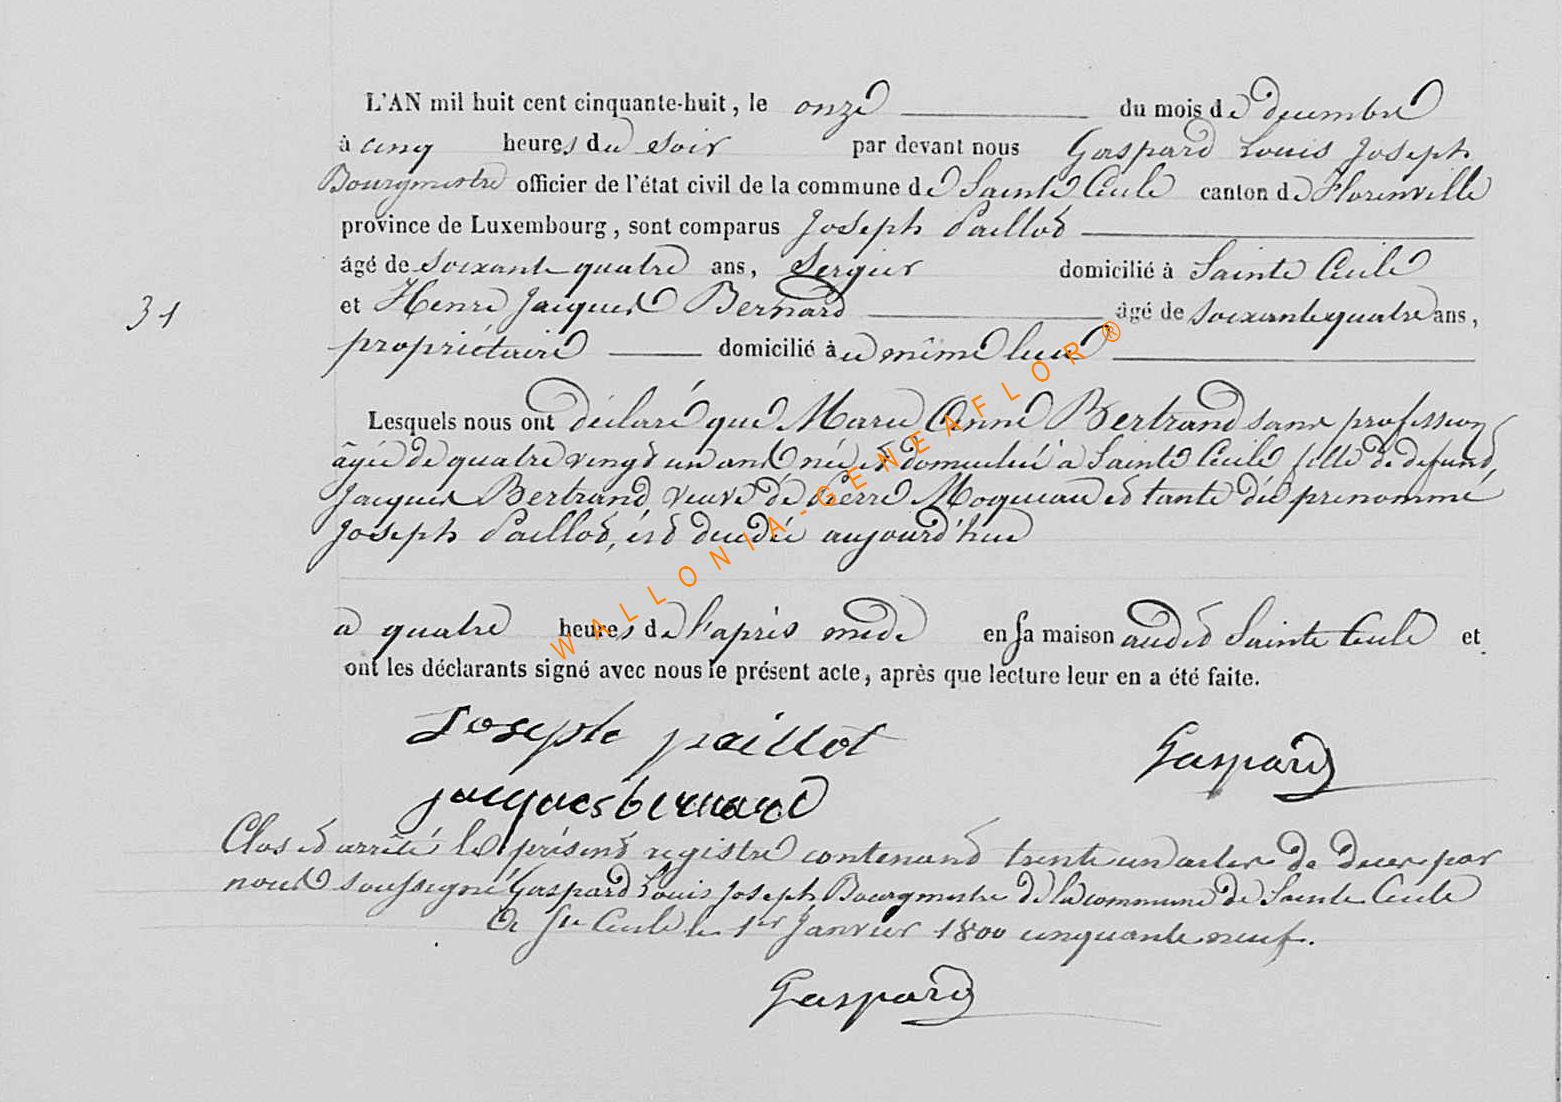 L'AN mil huit cent cinquante-huit, le onze du mois de decembre
à cinq heures du soir par devant nous Gaspard Louis Joseph
Bourgmestre officier de l'état civil de la commune de Sainte Cecile canton de Florenville
province de Luxembourg, sont comparus Joseph Paillot
âgé de soixante quatre ans, Sergier domicilié à Sainte Cecile
et Henri Jacques Bernard âgé de soixante quatre ans,
31
propriétaire domicilié à u même lieu
Lesquels nous ont déclaré que Marie Anne Bertrand sans profession
âgée de quatre vingt un ans née et domiciliée à Sainte Cecile fille de defunt
Jacques Bertrand, veuve de Pierre Moqueau et tante du prenommé
Joseph Paillot, est decedée aujourd'hui
à quatre heures de l'après midi en sa maison audit Sainte Cecile et
ont les déclarants signé avec nous le présent acte, après que lecture leur en a été faite.
Joseph paillot Gaspard
jacques bernard
Clos et arrêté le présent registre contenant trente un actes de deces par
nous soussigné Gaspard Louis Joseph Bourgmestre de la commune de Sainte Cecile
A Ste Cecile le 1er Janvier 1800 cinquante neuf.
Gaspard
WALLONIA-GENEAFLOR®